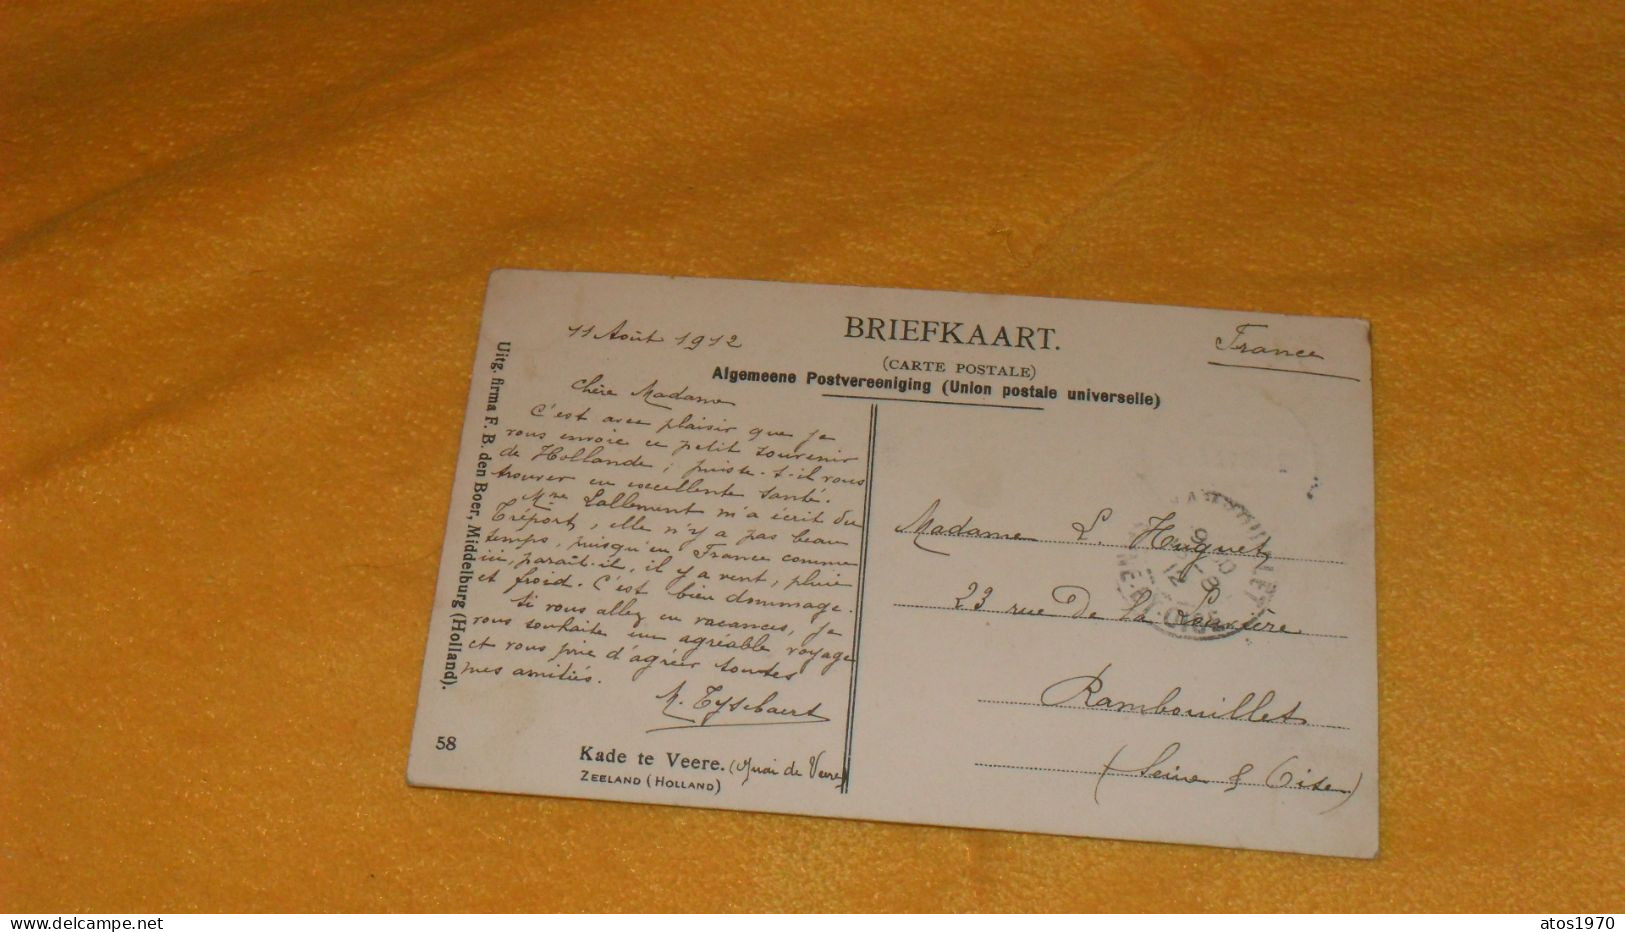 BRIEFKAART.
(CARTE POSTALE)
Algemeene Postvereeniging (Union postale universelle)
11 Août 1912
Chère Madame
C'est avec plaisir que je
vous envoie ce petit souvenir
de Hollande ; puisse-t-il vous
trouver en excellente santé.
Mme Lallement m'a écrit du
Tréport, elle n'y a pas beau
temps, puisqu'en France comme
ici, paraît-il, il y a vent, pluie
et froid. C'est bien dommage.
Si vous allez en vacances, je
vous souhaite un agréable voyage
et vous prie d'agréer toutes
mes amitiés.
M. Tysebaert
58
Kade te Veere. (Quai de Veere)
ZEELAND (HOLLAND)
Uitg. firma F. B. den Boer, Middelburg (Holland).
France
Madame L. Huguet
23 rue De la Louvière
Rambouillet
(Seine & Oise)
www.delcampe.net
atos1970